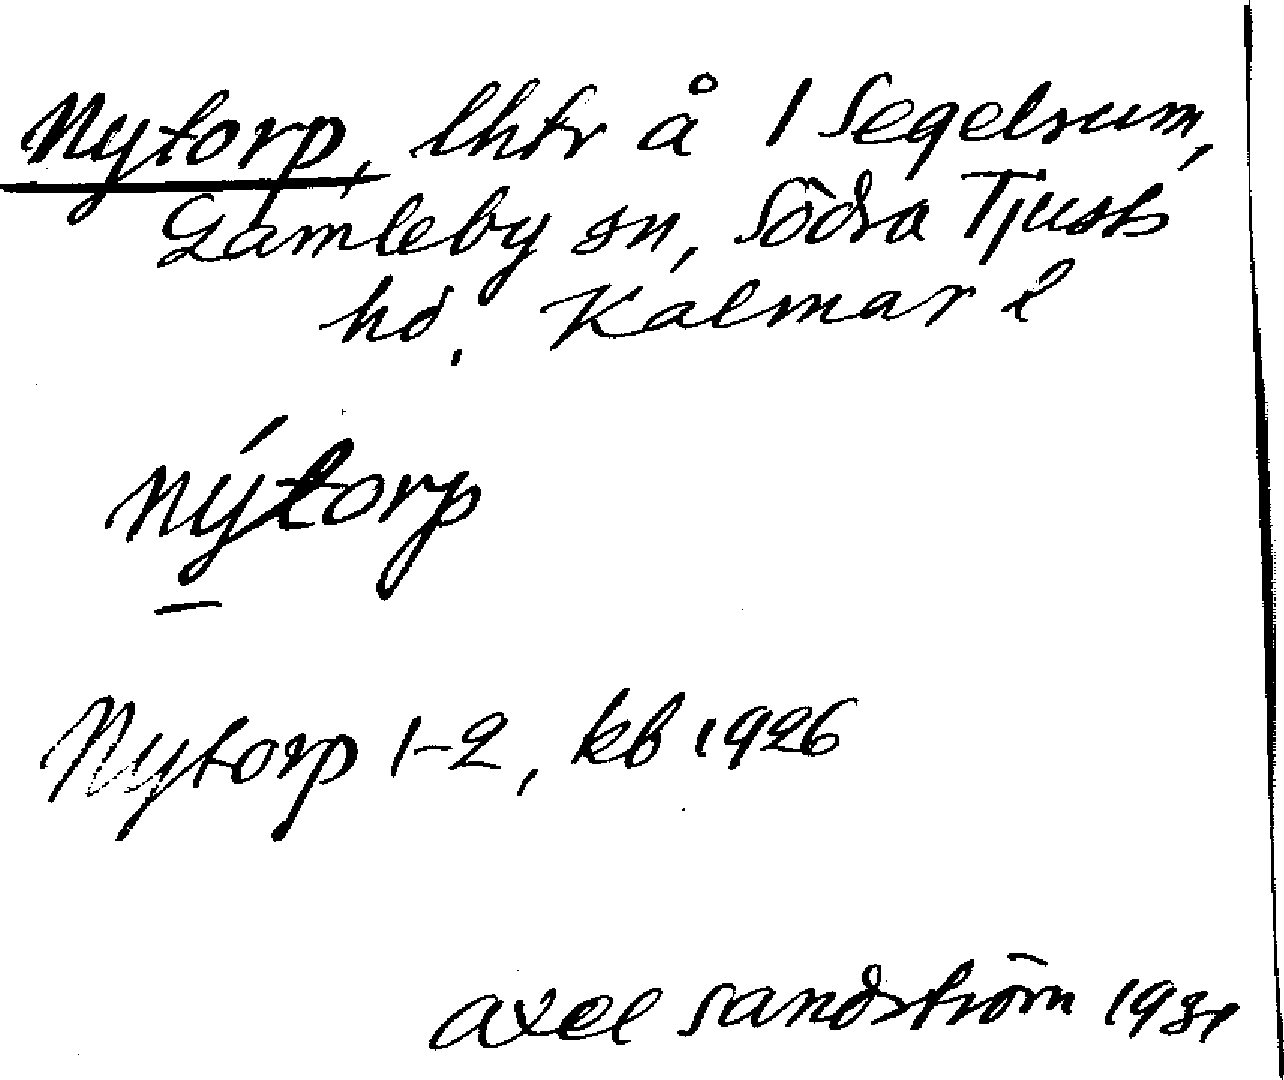 Nytorp, lhtr å 1 Segelrum,
Gamleby sn, Södra Tjusts
hd. Kalmar l
nýtorp
Nytorp 1-2, kb 1926
Axel Sandström